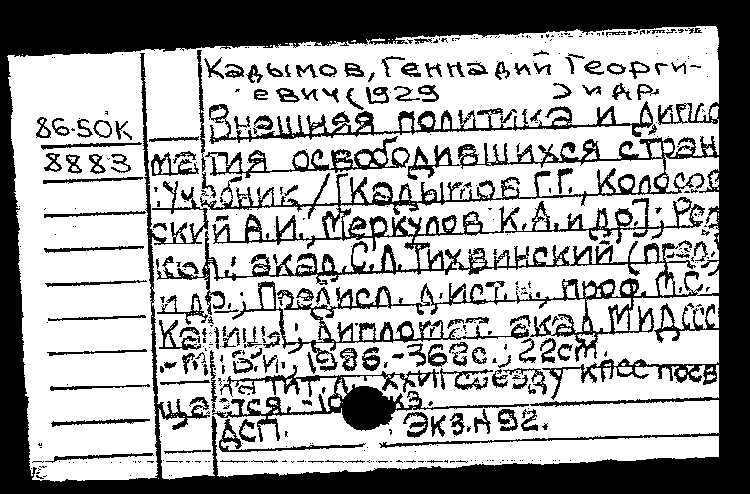 Кадымов, Геннадий Георги-
евич (1929 ) и др.
86-50К Внешняя политика и дипло
8883 матия освободившихся стран
: Учебник / [Кадымов Г.Г., Колосов
ский А.И., Меркулов К.А. и др.]; Ред
кол.: акад. С.Л. Тихвинский (пред.)
и др.; Предисл. д.ист.н., проф. М.С.
Капицы; Дипломат. акад. МИД СССР
.- М.: Б.и., 1986.-368с.; 22см.
На тит. л.: XXVII съезду КПСС посв
щается.
ДСП. Экз.N 92.